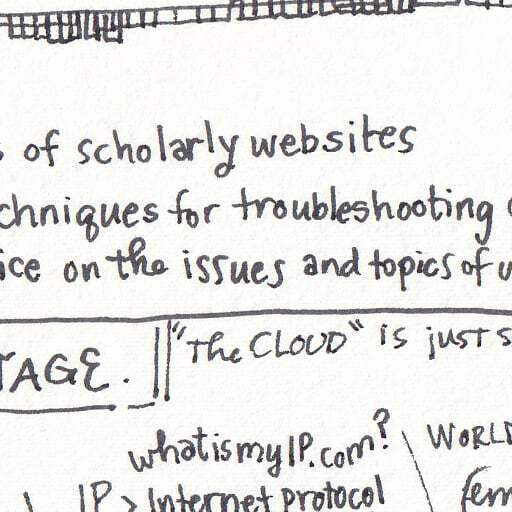 s of scholarly websites
chniques for troubleshooting
ice on the issues and topics of
TAGE. "The CLOUD" is just s
whatismyIP.com? WORLD
IP > Internet protocol fem